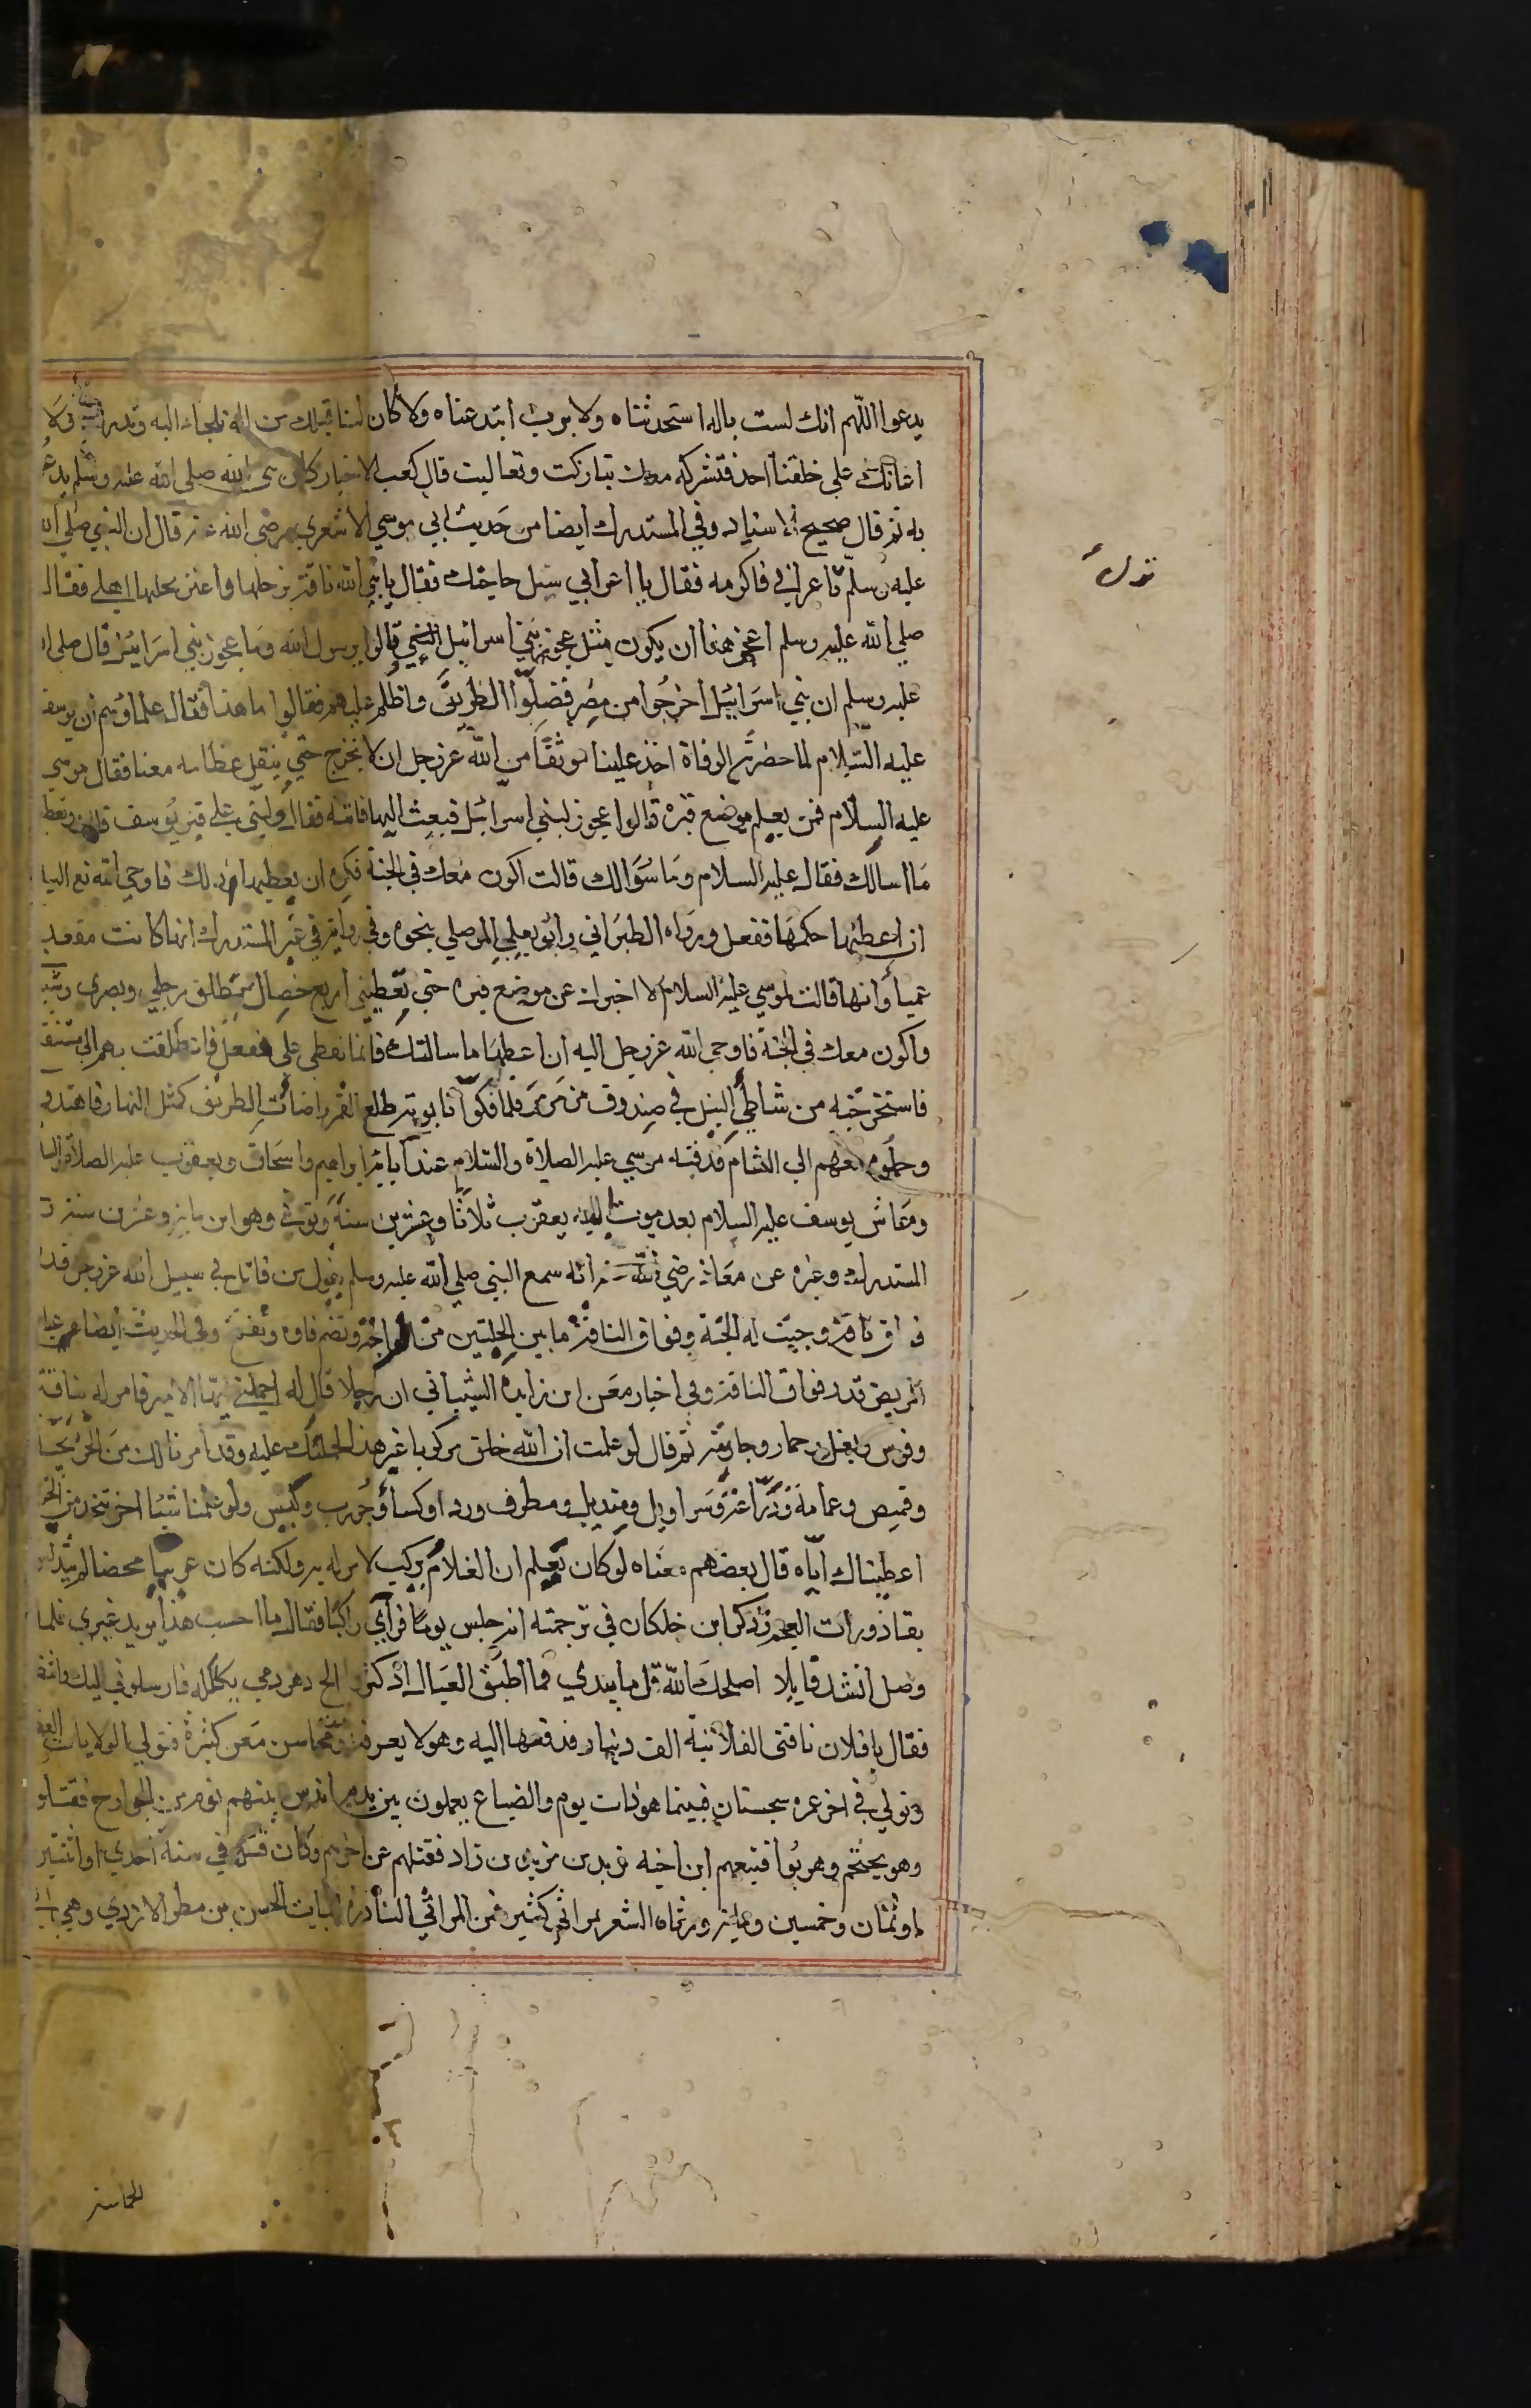 يدعوا اللهم انك لست باله استحدثناه ولا برب ابتدعناه ولا كان لنا قبلك من اله نلجاء اليه ونذرك ولا
اعانك على خلقنا احد فنشركه معك تباركت وتعاليت قال كعب الاخبار كان نبى الله صلى الله عليه وسلم يدعو
به ثم قال صحيح الاسناد وفي المستدرك ايضا من حديث ابي موسي الاشعري رضى الله عنه قال ان النبي صلى الله
عليه وسلم نزل باعرابي فاكرمه فقال يا اعرابي سل حاجتك فقال يا نبي الله ناقة برحلها واعنز يحلبها اهلي فقال
صلي الله عليه وسلم اعجز هذا ان يكون مثل عجوز بني اسرائيل قالوا يرسول الله وما عجوز بني اسرائيل قال صلى ا
عليه وسلم ان بني اسرائيل اخرجوا من مصر فضلوا الطريق واظلم عليهم فقالوا ما هذا فقال علماؤهم ان يوسف
عليه السلام لما حضرته الوفاة اخذ علينا موثقا من الله عز وجل ان لا نخرج حتي ننقل عظامه معنا فقال موسي
عليه السلام فمن يعلم موضع قبره قالوا عجوز لبني اسرائيل فبعث اليها فاتته فقال دليني علي قبر يوسف قالت وتعط
ما اسالك فقال عليه السلام وما سؤالك قالت اكون معك في الجنة فكره ان يعطيها ذلك فاوحي الله تع اليا
ان اعطيها حكمها ففعل ورواه الطبراني وابو يعلي الموصلي بنحوه وفي رواية في غير المستدرك انها كانت مقعد
عمياء وانها قالت لموسي عليه السلام لا اخبرك عن موضع قبره حتي تعطيني اربع خصال تطلق رجلي وبصري وشبا
واكون معك في الجنة فاوحي الله عز وجل اليه ان اعطها ما سالتك فانما تعطى على ففعل فانطلقت بهم الي مستنقع
فاستخرجته من شاطي النيل في صندوق من مرمر فلما فكوا تابوته طلع القمر واضأت الطريق كمثل النهار فاهتدو
وحملوه معهم الي الشام فدفنه موسي عليه الصلاة والسلام عند آبائه ابراهيم واسحاق ويعقوب عليه الصلاة والسا
وعاش يوسف عليه السلام بعد موت ابيه يعقوب ثلاثا وعشرين سنة وتوفي وهو ابن ماية وعشرين سنة و
المستدرك وغيره عن معاذ رضي الله عنه انه سمع النبي صلي الله عليه وسلم يقول من قاتل في سبيل الله عز وجل قدر
فواق ناقة وجبت له الجنة وفواق الناقة ما بين الحلبتين من الراحة وتضم فاوه وتفتح وفي الحديث ايضا عيادة
المريض قدر فواق الناقة وفي اخبار معن ابن زايده الشيباني ان رجلا قال له احملني ايها الامير فامر له بناقة
وفرس وبغل وحمار وجارية ثم قال لو علمت ان الله خلق مركوبا غير هذا لحملتك عليه وقد امرنا لك من الخز بجبة
وقميص وعمامة ودراعة وسراويل ومنديل ومطرف وردا وكساء وجورب وكيس ولو علمنا شيئا اخر يتخذ من الخز
اعطيناك اياه قال بعضهم معناه لو كان يعلم ان الغلام يركب لامر له به ولكنه كان عربيا محضا لم يتدنس
بقاذورات العجم وذكر ابن خلكان في ترجمته انه جلس يوما فرآي راكبا فقال ما احسب هذا يريد غيري فلما
وصل انشد قايلا اصلحك الله قل ما بيدي فما اطيق العيال اذ كثروا الح دهر رمي بكلكله فارسلوني اليك وانتظ
فقال يا فلان ناقتى الفلانية الف دينار فدفعها اليه وهو لا يعرفه ومحاسن معن كثيرة فتولي الولايات العظ
وتولي في اخر عمره سجستان فبينما هو ذات يوم والضياع يعملون بين يديه اندس بينهم نوم من الخوارج فقتلو
وهو يحتجم وهربوا فتبعهم ابن اخيه يزيد بن مزيد بن زاد فقتلهم عن اخرهم وكان قتله في سنة احدي او اثنتين
او ثمان وخمسين وماية ورثاه الشعر بمراثي كثير فمن المراثي النادرة ابيات الحسين بن مطر الازدي وهي ابيا
الحماسة